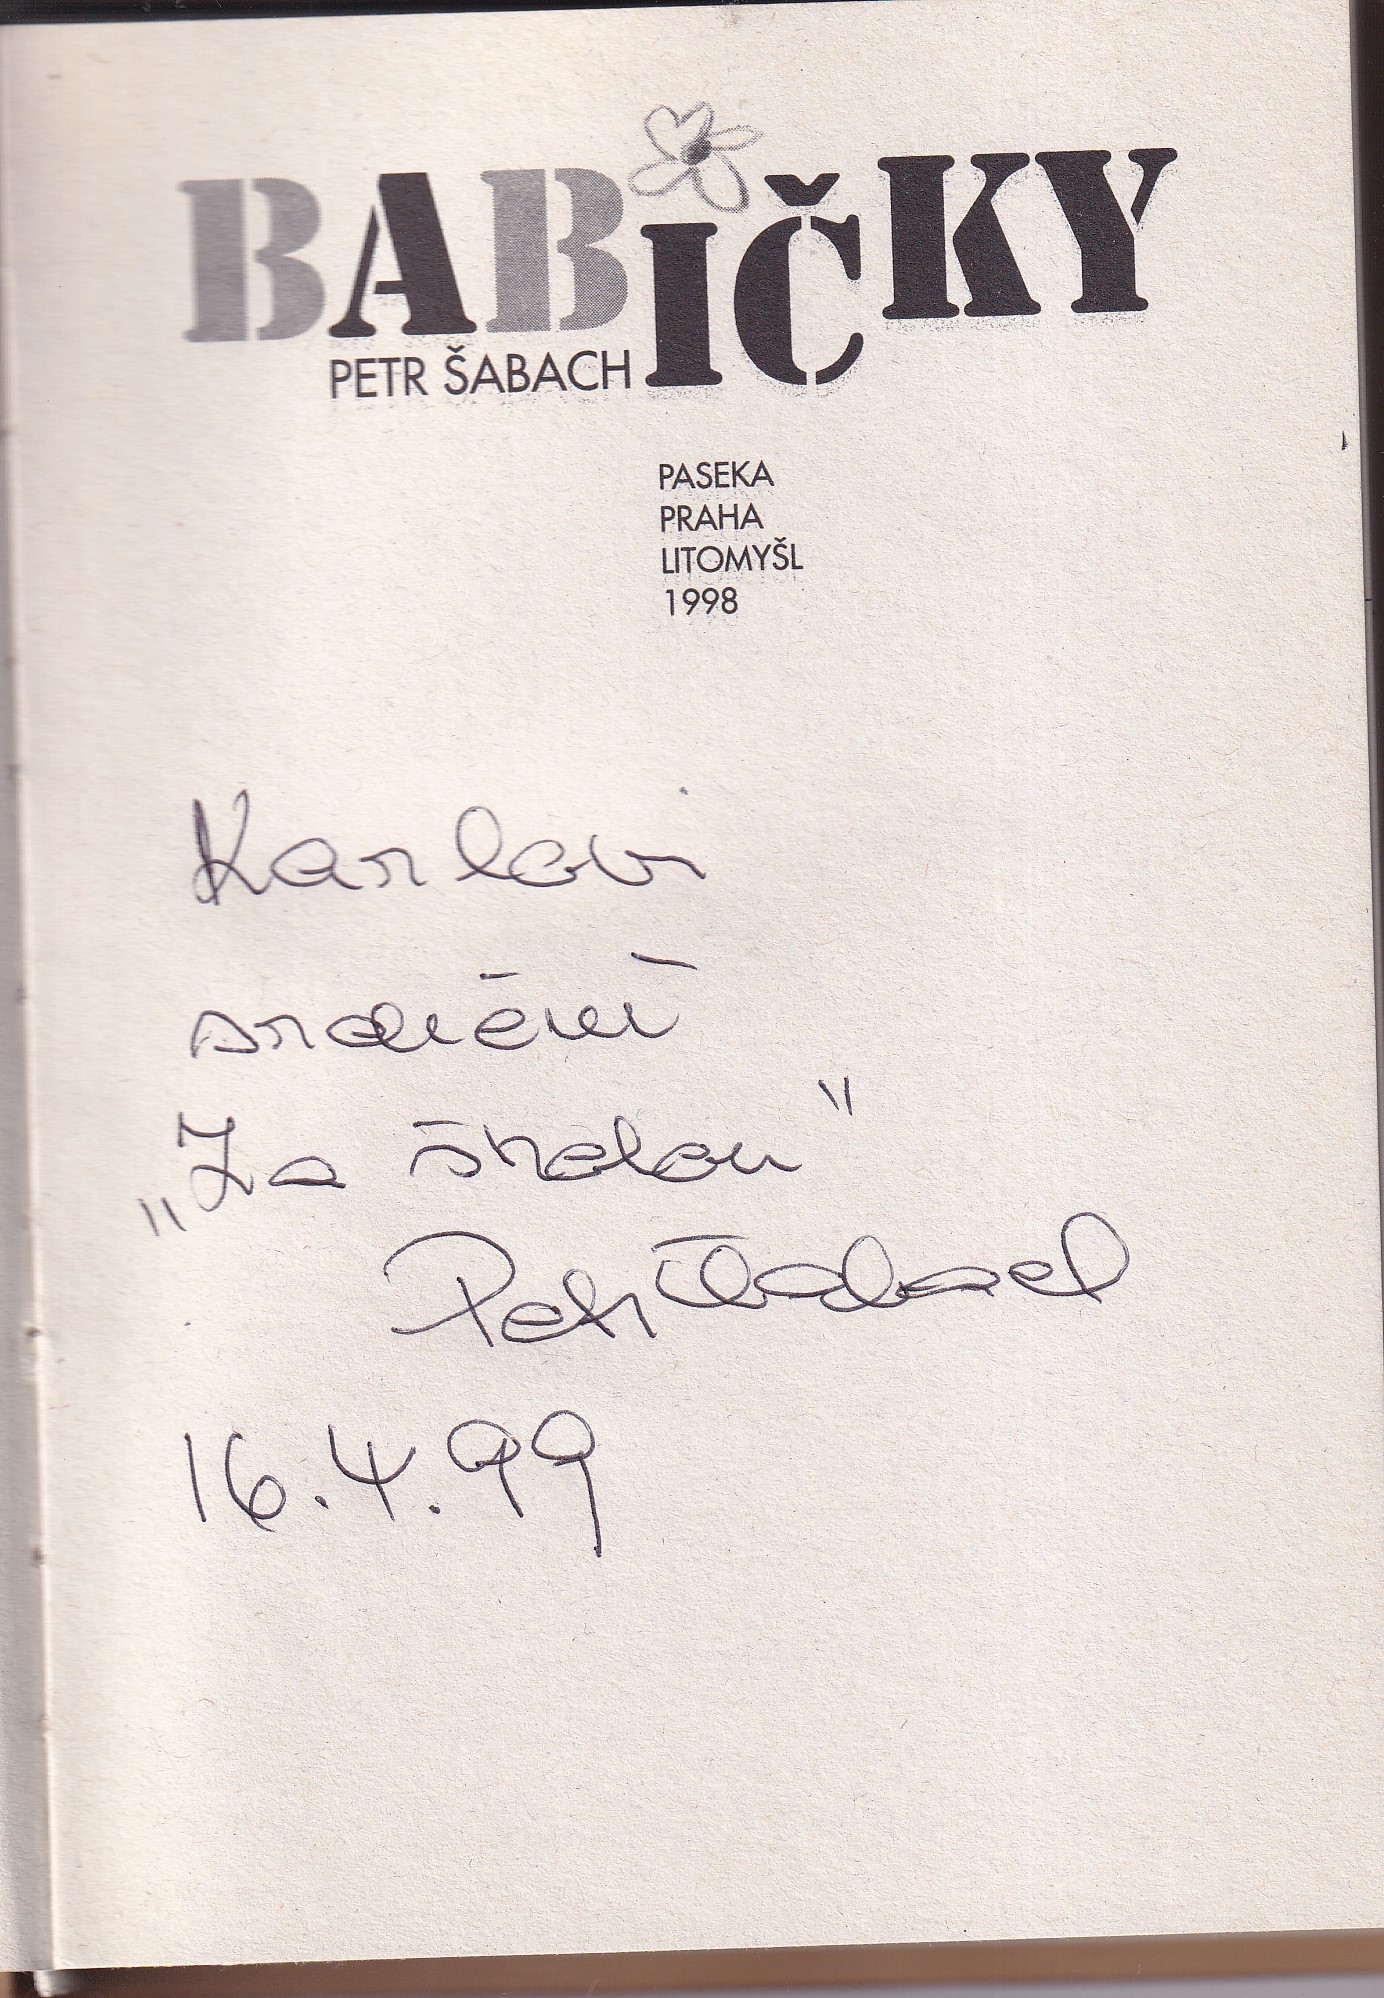 BABIČKY
PETR ŠABACH
PASEKA
PRAHA
LITOMYŠL
1998
Karlovi
srdečně
„Za školou"
Petr Šabach
16.4.99